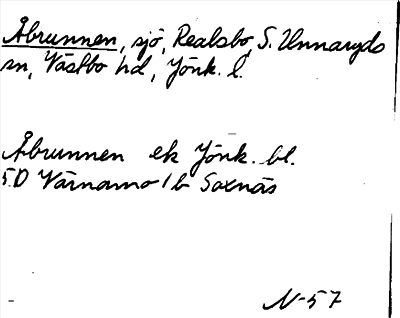 Åbrunnen, sjö, Realsbo, S. Unnaryds
sn, Västbo hd, Jönk. l.
Åbrunnen ek Jönk. bl.
5D Värnamo 1b Saxnäs
N-57